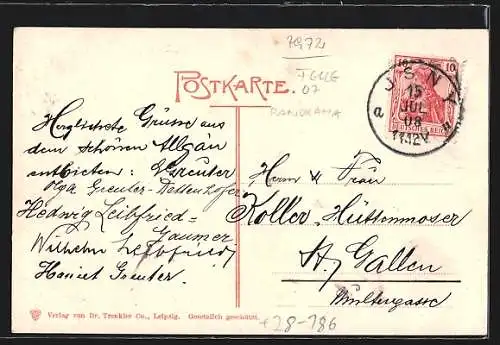 7972
TGHG
07
PANORAMA
POSTKARTE.
10 10
DEUTSCHES REICH
JSNY
15
JUL
08
11-12V
a
Herzlichste Grüsse aus
dem schönen Allgäu
entbieten: E. Greuter
Olga Greuter-Dettenhofer
Hedwig Leibfried-
Gaumer
Wilhelm Leibfried
Harriet Greuter.
Herrn & Frau
Koller-Hüttenmoser
St. Gallen
Multergasse
Verlag von Dr. Trenkler Co., Leipzig. Gesetzlich geschützt.
+28-186